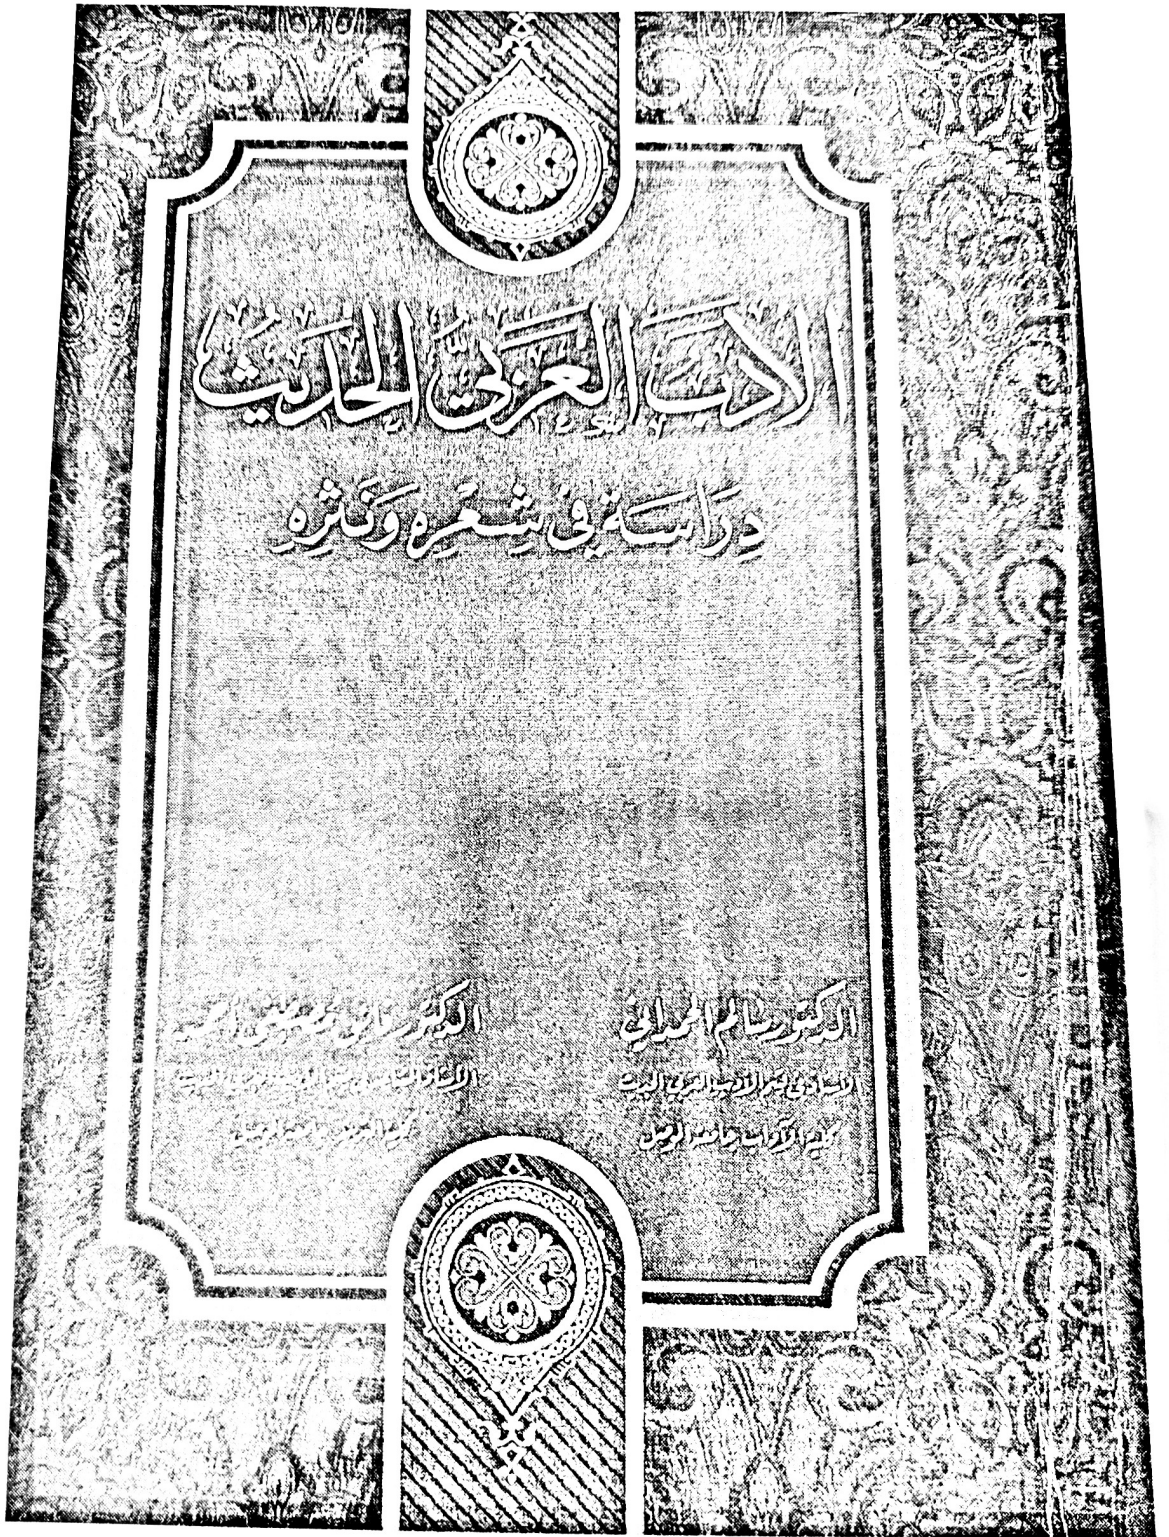 الأدَبُ العَرَبيُّ الحَدِيثُ
دِرَاسَة في شِعْرِهِ وَنَثرِهِ
الدكتور سالم الحمداني
الأستاذ في الأدب العربي الحديث
كلية الآداب جامعة الموصل
الدكتور فائق مصطفى أحمد
الأستاذ